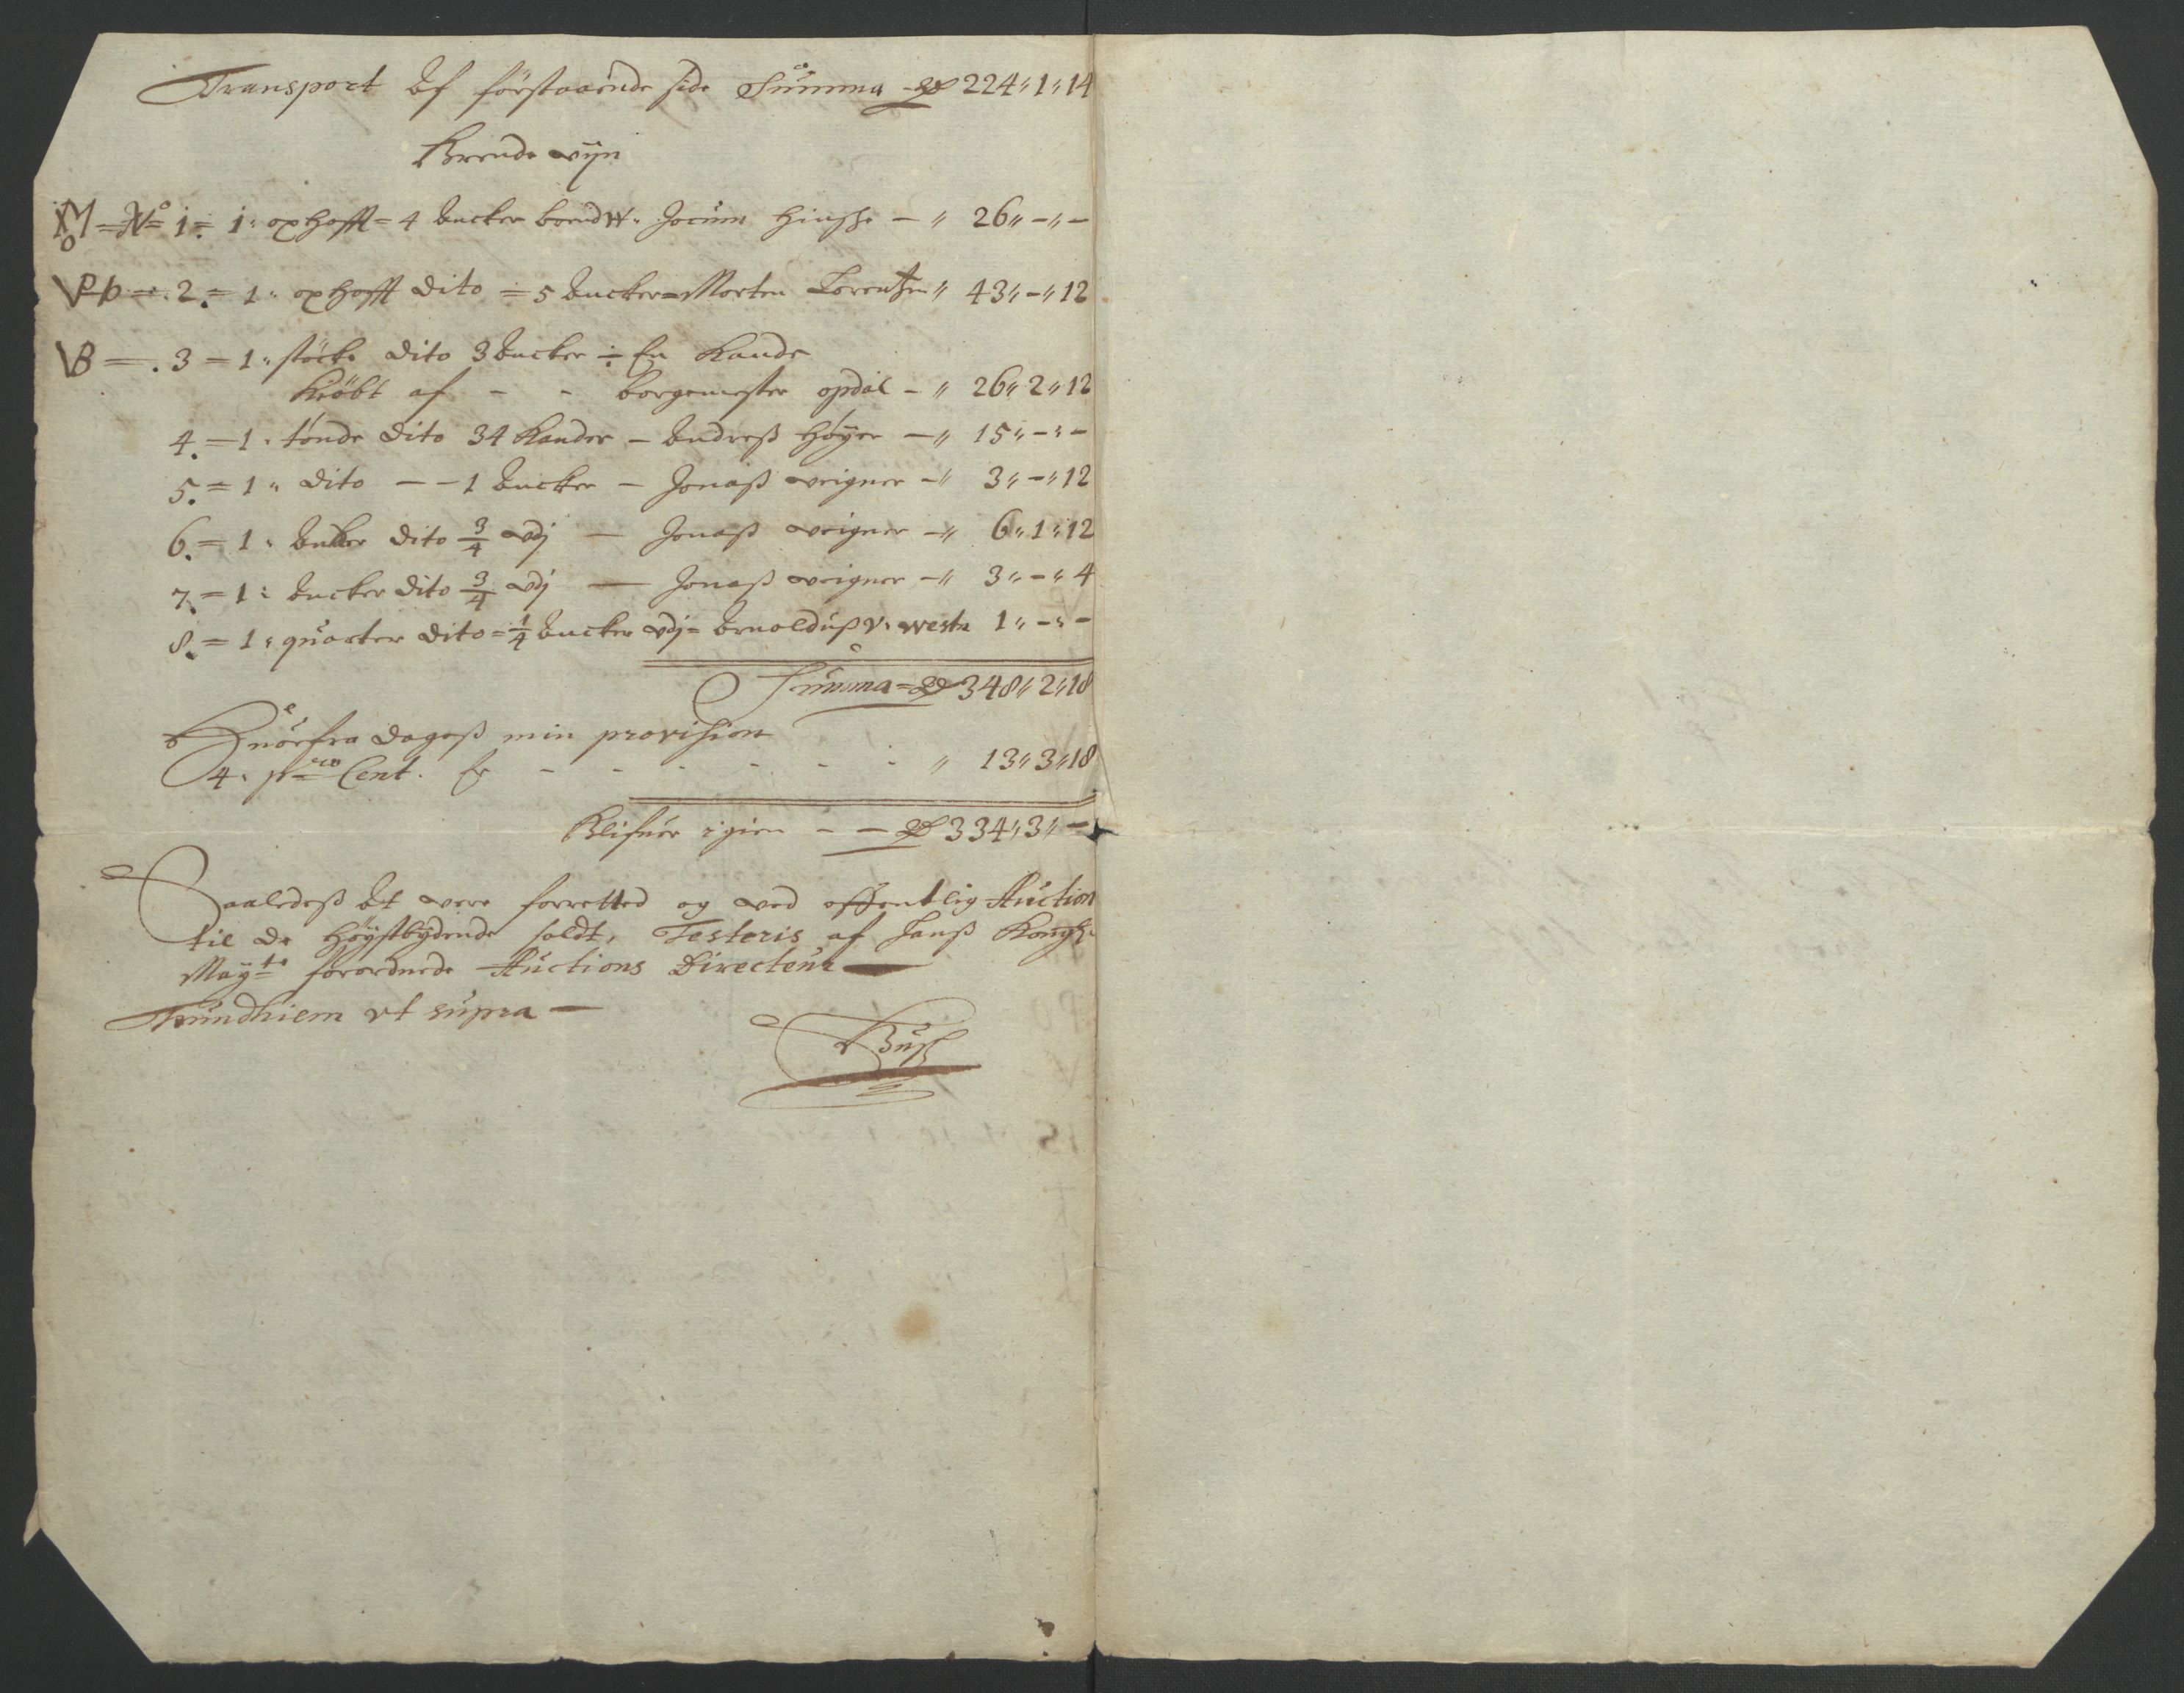 Transport Af förstaaende side Summa - Rd 224"1"14
Brende vijn
M=No 1= 1" oxhofft = 4 Ancker brendW" Jocum Hinsche - " 26"-"-
VPb = . 2. = 1" oxhofft dito = 5 Ancker = Morten Lorentzen " 43"-"12
VB = . 3 = 1" støcke dito 3 Ancker ÷ En Kande
Kiöbt af - - borgemester opdal - " 26"2"12
4. = 1" tønde dito 34 Kander - Andreß Høyer - " 15"-"-
5. = 1" dito - - 1 Ancker - Jonaß weigner - " 3"-"12
6. = 1" Ancker dito 3/4 vdj - Jonaß weigner - " 6"1"12
7. = 1" Ancker dito 3/4 vdj - Jonaß weigner - " 3"-"4
8. = 1" quarter dito = 1/4 Ancker vdj = Arnolduß v. westn 1"-"-
Summa = Rd 348"2"18
Huorfra dageß min provision
4" pro Cent. Er - - - - - - " 13"3"18
Blifuer igien - - Rd 334"3"-
Saaledeß At vere forretted og ved offentlig Auction
til de Høystbydende soldt, Testeris af Hanß Kongl:
Mayts forordnede Auctions Directeur
Trundhiem vt supra
Busch